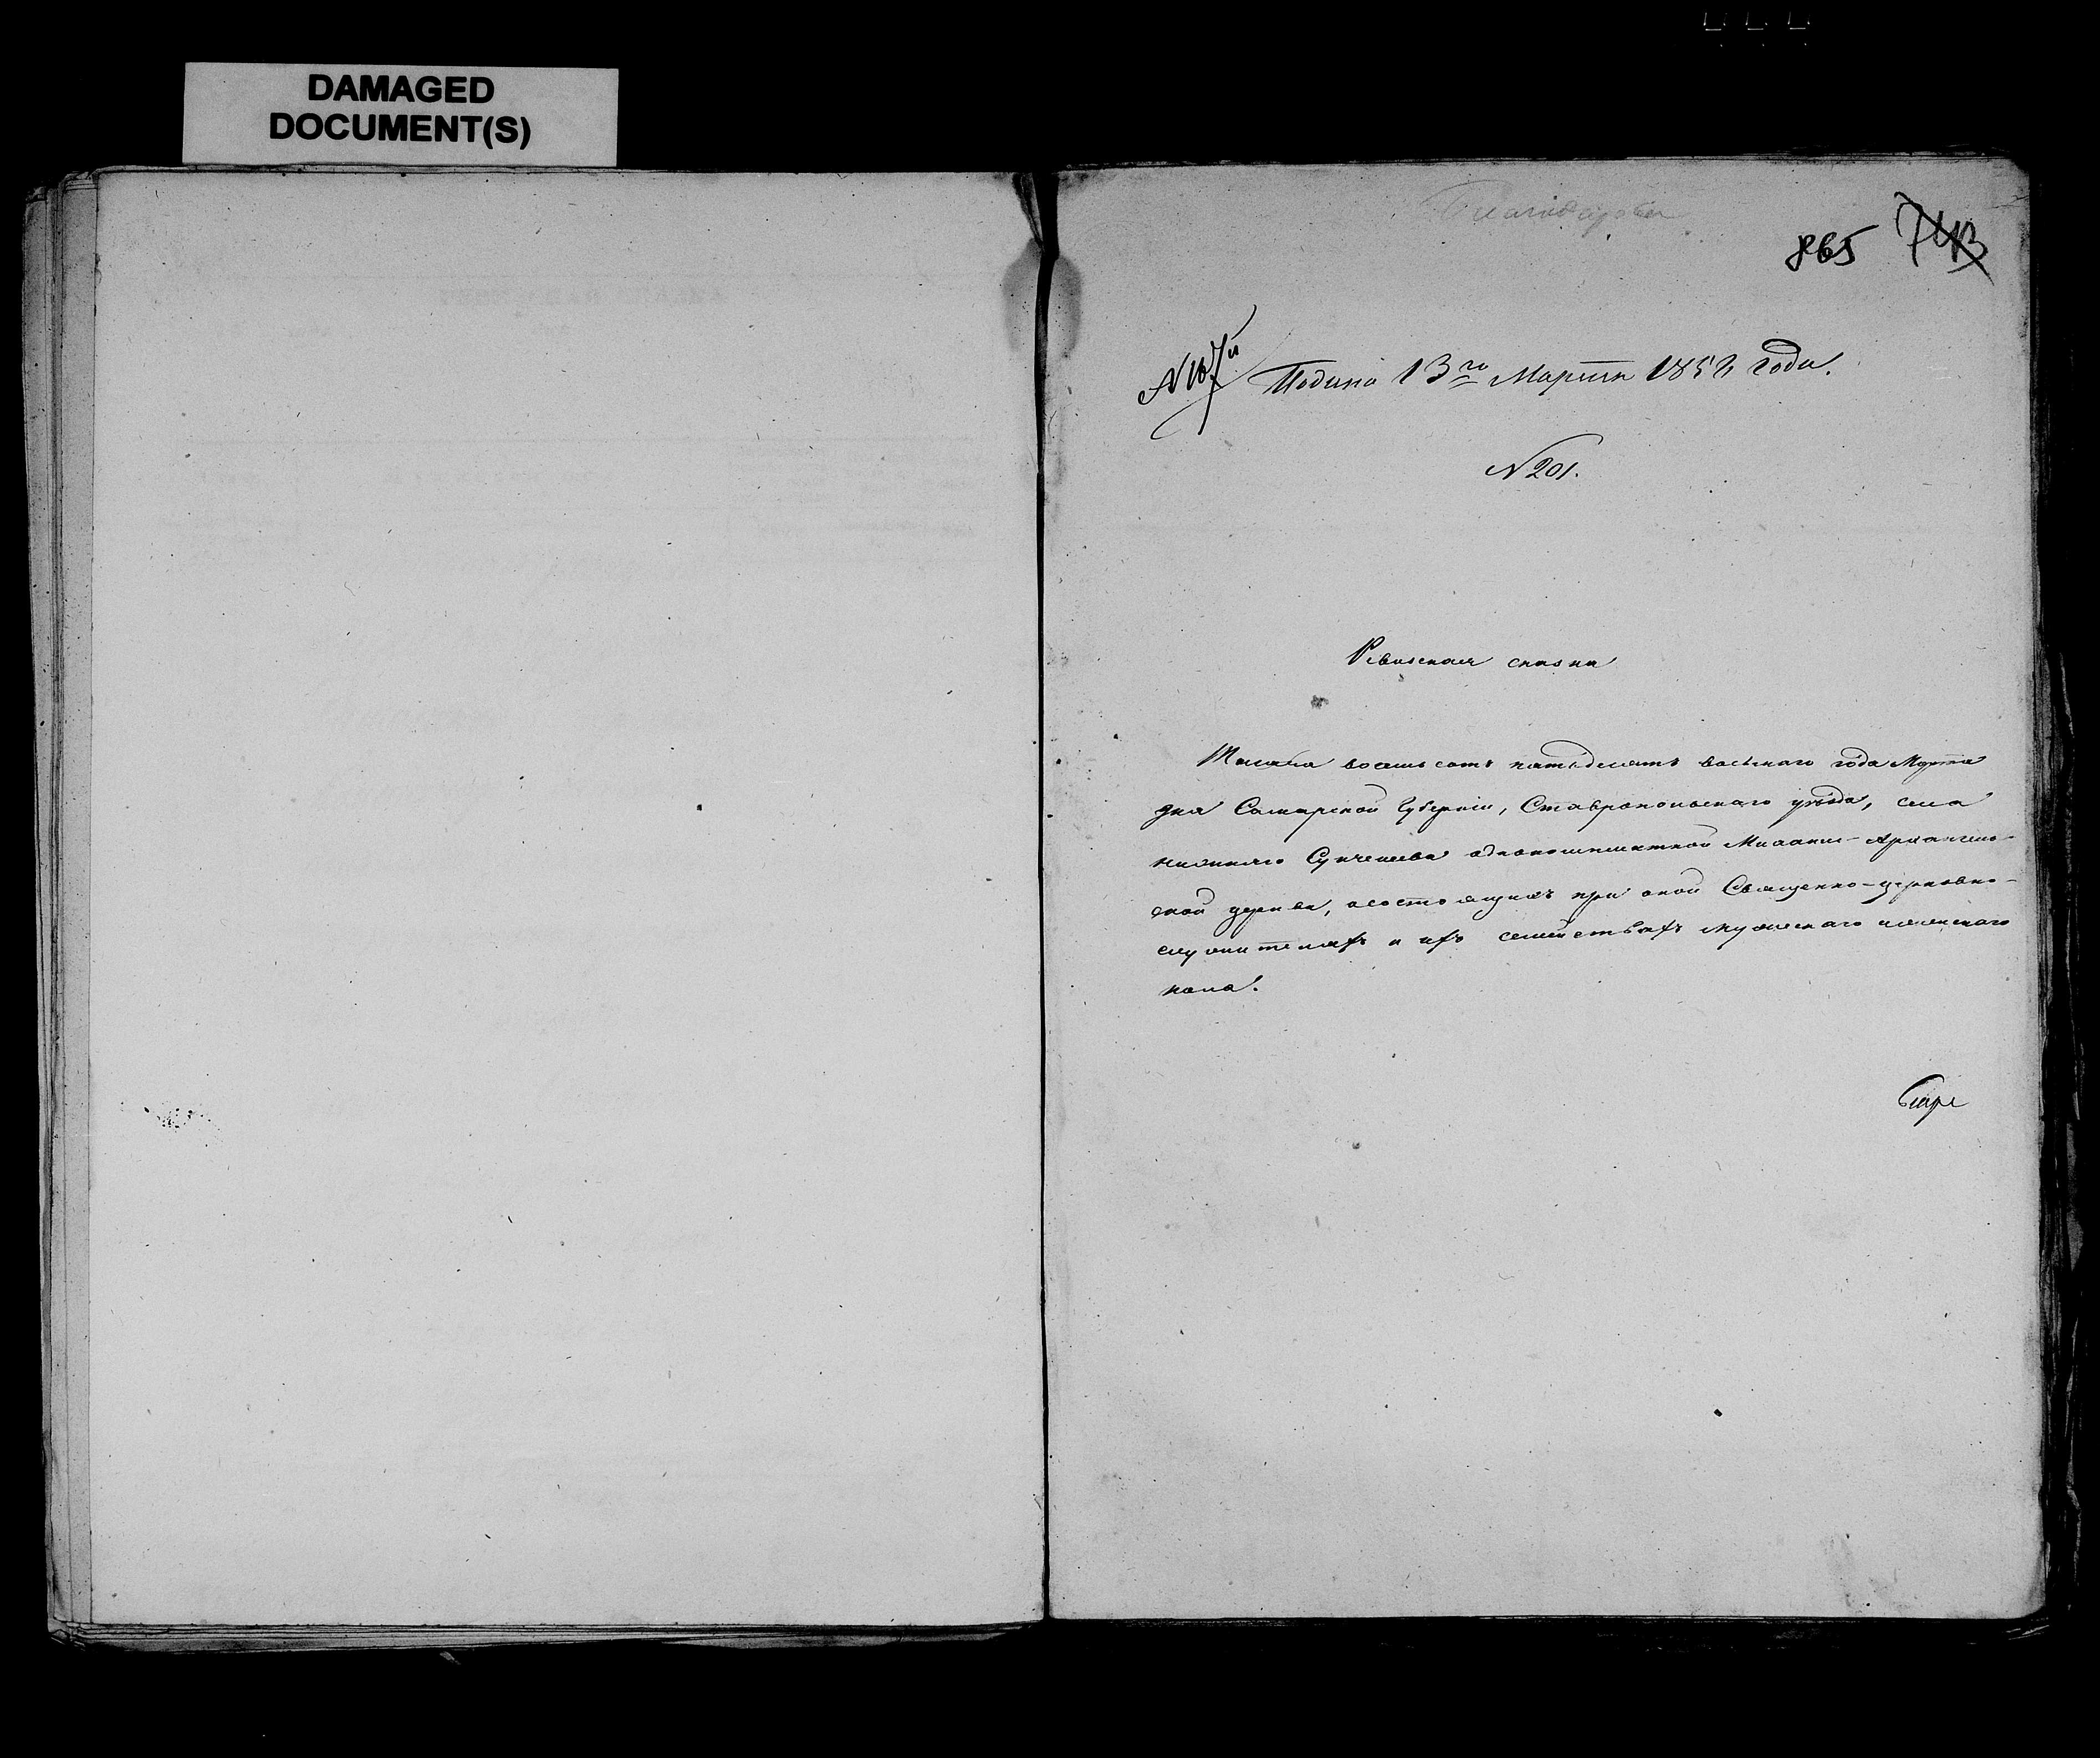 DAMAGED
DOCUMENT(S)
865 743
Подана 13го Марта 1858 года.
N 201.
Ревизская сказка
Тысяча восемьсотъ пятьдесятъ восьмаго года Марта
дня Самарской Губерніи, Ставропольскаго уѣзда, села
нижняго Сунчелеева одноштатной Михаило-Архангель-
ской церкви, о состоящихъ при оной Священно-церковно-
служителяхъ и ихъ семействахъ мужескаго и женскаго
пола.